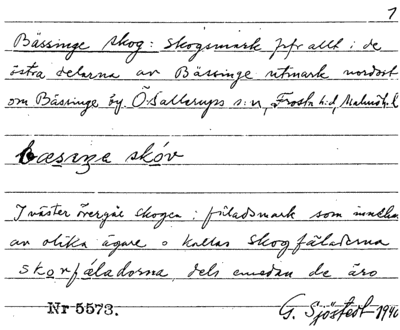 1
Bässinge skog: skogsmark frfr allt i de
östra delarna av Bässinge utmark nordost
om Bässinge by. Ö. Sallerups s:n, Frosta h:d, Malmöh. l
bæsiŋe skóv
I väster övergår skogen i fäladsmark som innehas
av olika ägare o kallas Skogfäladerna
skovfáladorna dels emedan de äro
Nr 5573.
G. Sjöstedt 1940